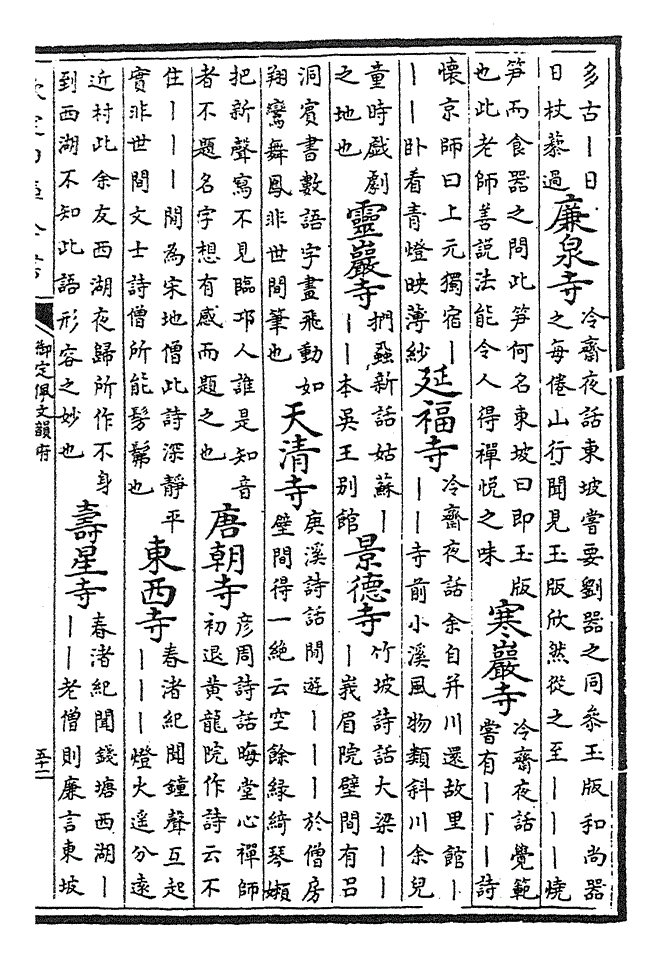 多古｜日
日杖藜過
廉泉寺
冷齋夜話東坡嘗要劉器之同參玉版和尚器
之每倦山行聞見玉版欣然從之至｜｜｜燒
笋而食器之問此笋何名東坡曰即玉版
也此老師善説法能令人得禪悦之味
寒巖寺
冷齋夜話覺範
嘗有｜｜｜詩
懷京師曰上元獨宿｜
｜｜卧看青燈映薄紗
延福寺
冷齋夜話余自并川還故里館｜
｜｜寺前小溪風物類斜川余兒
童時戲劇
之地也
靈巖寺
捫蝨新話姑蘇｜
｜｜本吳王别館
景德寺
竹坡詩話大梁｜｜
｜峩眉院壁間有吕
洞賓書數語字畫飛動如
翔鸞舞鳳非世間筆也
天清寺
庚溪詩話閒遊｜｜｜於僧房
壁間得一絶云空餘緑綺琴嬾
把新聲寫不見臨邛人誰是知音
者不題名字想有感而題之也
唐朝寺
彦周詩話晦堂心禪師
初退黄龍院作詩云不
住｜｜｜閒為宋地僧此詩深靜平
實非世間文士詩僧所能髣髴也
東西寺
春渚紀聞鐘聲互起
｜｜｜燈火遥分遠
近村此余友西湖夜歸所作不身
到西湖不知此語形容之妙也
壽星寺
春渚紀聞錢塘西湖｜
｜｜老僧則廉言東坡
欽定四庫全書
御定佩文韻府
五十二